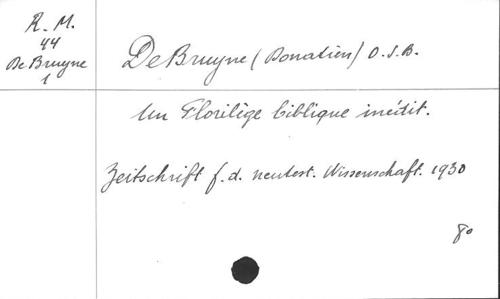 R. M.
44
De Bruyne
1
De Bruyne (Donatien) O.S.B.
Un Florilège biblique inédit.
Zeitschrift f. d. neutest. Wissenschaft. 1930
8º